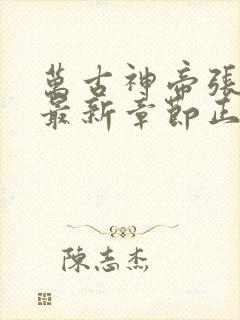 萬古神帝張
最新章節正
陳志杰